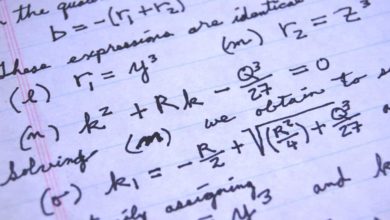 the qua
b = -(r₁ + r₂)
These expressions are identical
(l) r₁ = y³ (m) r₂ = z³
(n) k² + Rk - Q³/27 = 0
Solving (m) we obtain to
(o) k₁ = -R/2 + √((R²/4) + Q³/27
assigning y³ and k